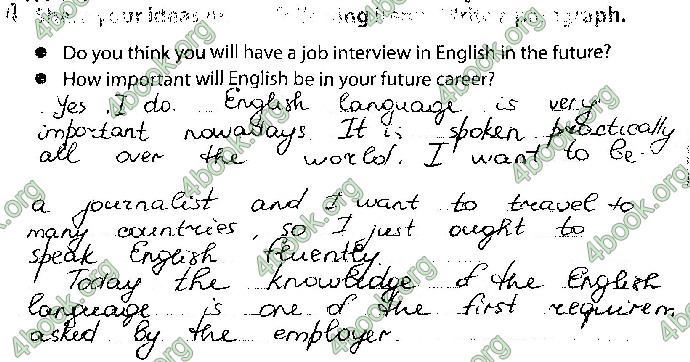 your ideas
paragraph.
● Do you think you will have a job interview in English in the future?
● How important will English be in your future career?
Yes, I do. English language is very
important nowadays. It is spoken practically
all over the world. I want to be
a journalist and I want to travel to
many countries, so I just ought to
speak English fluently.
Today the knowledge of the English
language is one of the first requirem
asked by the employer.
4book.org